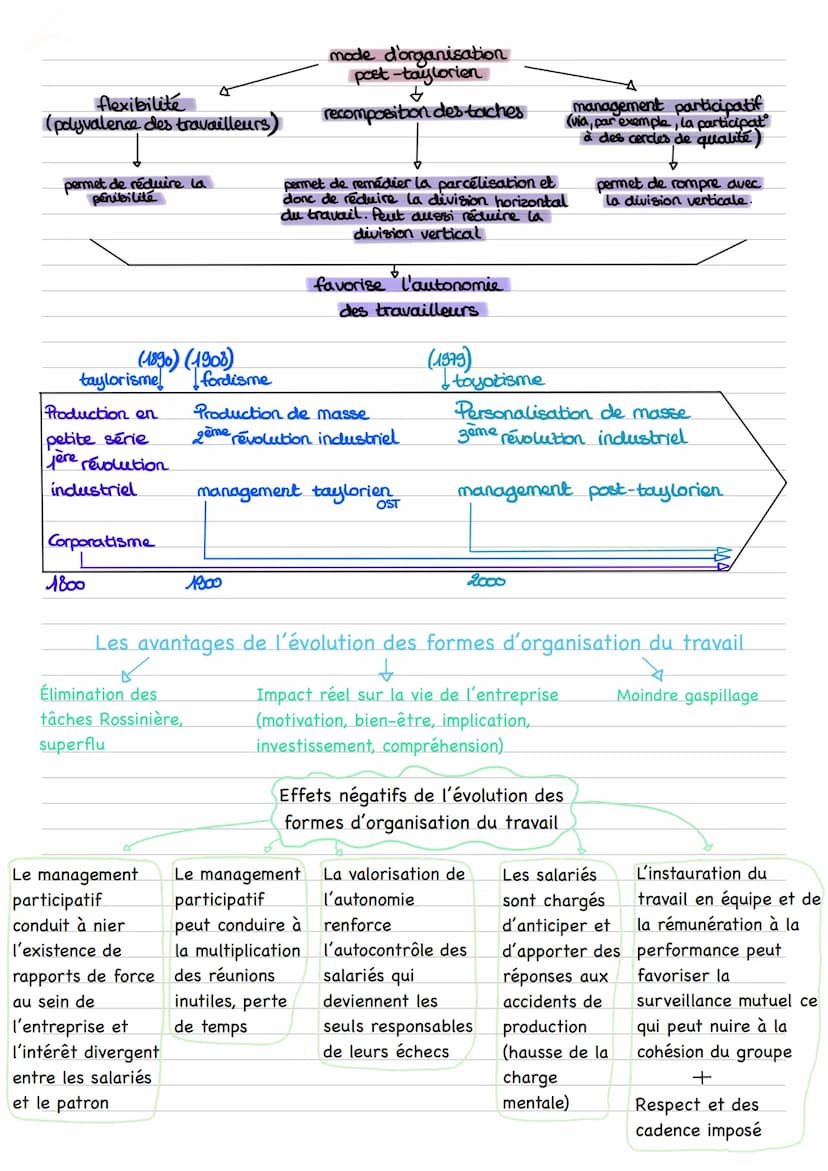 mode d'organisation
post-taylorien
flexibilité
(polyvalence des travailleurs)
recomposition des taches
management participatif
(via, par exemple, la participat°
à des cercles de qualité)
permet de réduire la
pénibilité
permet de remédier la parcélisation et
donc de réduire la division horizontal
du travail. Peut aussi réduire la
division vertical
permet de rompre avec
la division verticale.
favorise l'autonomie
des travailleurs
(1890) (1908)
(1979)
taylorisme
fordisme
toyotisme
Production en
petite série
1ère révolution
industriel
Corporatisme
Production de masse
2ème révolution industriel
management taylorien
OST
Personalisation de masse
3ème révolution industriel
management post-taylorien
1800
1900
2000
Les avantages de l'évolution des formes d'organisation du travail
Élimination des
tâches Rossinière,
superflu
Impact réel sur la vie de l'entreprise
(motivation, bien-être, implication,
investissement, compréhension)
Moindre gaspillage
Effets négatifs de l'évolution des
formes d'organisation du travail
Le management
participatif
conduit à nier
l'existence de
rapports de force
au sein de
l'entreprise et
l'intérêt divergent
entre les salariés
et le patron
Le management
participatif
peut conduire à
la multiplication
des réunions
inutiles, perte
de temps
La valorisation de
l'autonomie
renforce
l'autocontrôle des
salariés qui
deviennent les
seuls responsables
de leurs échecs
Les salariés
sont chargés
d'anticiper et
d'apporter des
réponses aux
accidents de
production
(hausse de la
charge
mentale)
L'instauration du
travail en équipe et de
la rémunération à la
performance peut
favoriser la
surveillance mutuel ce
qui peut nuire à la
cohésion du groupe
+
Respect et des
cadence imposé